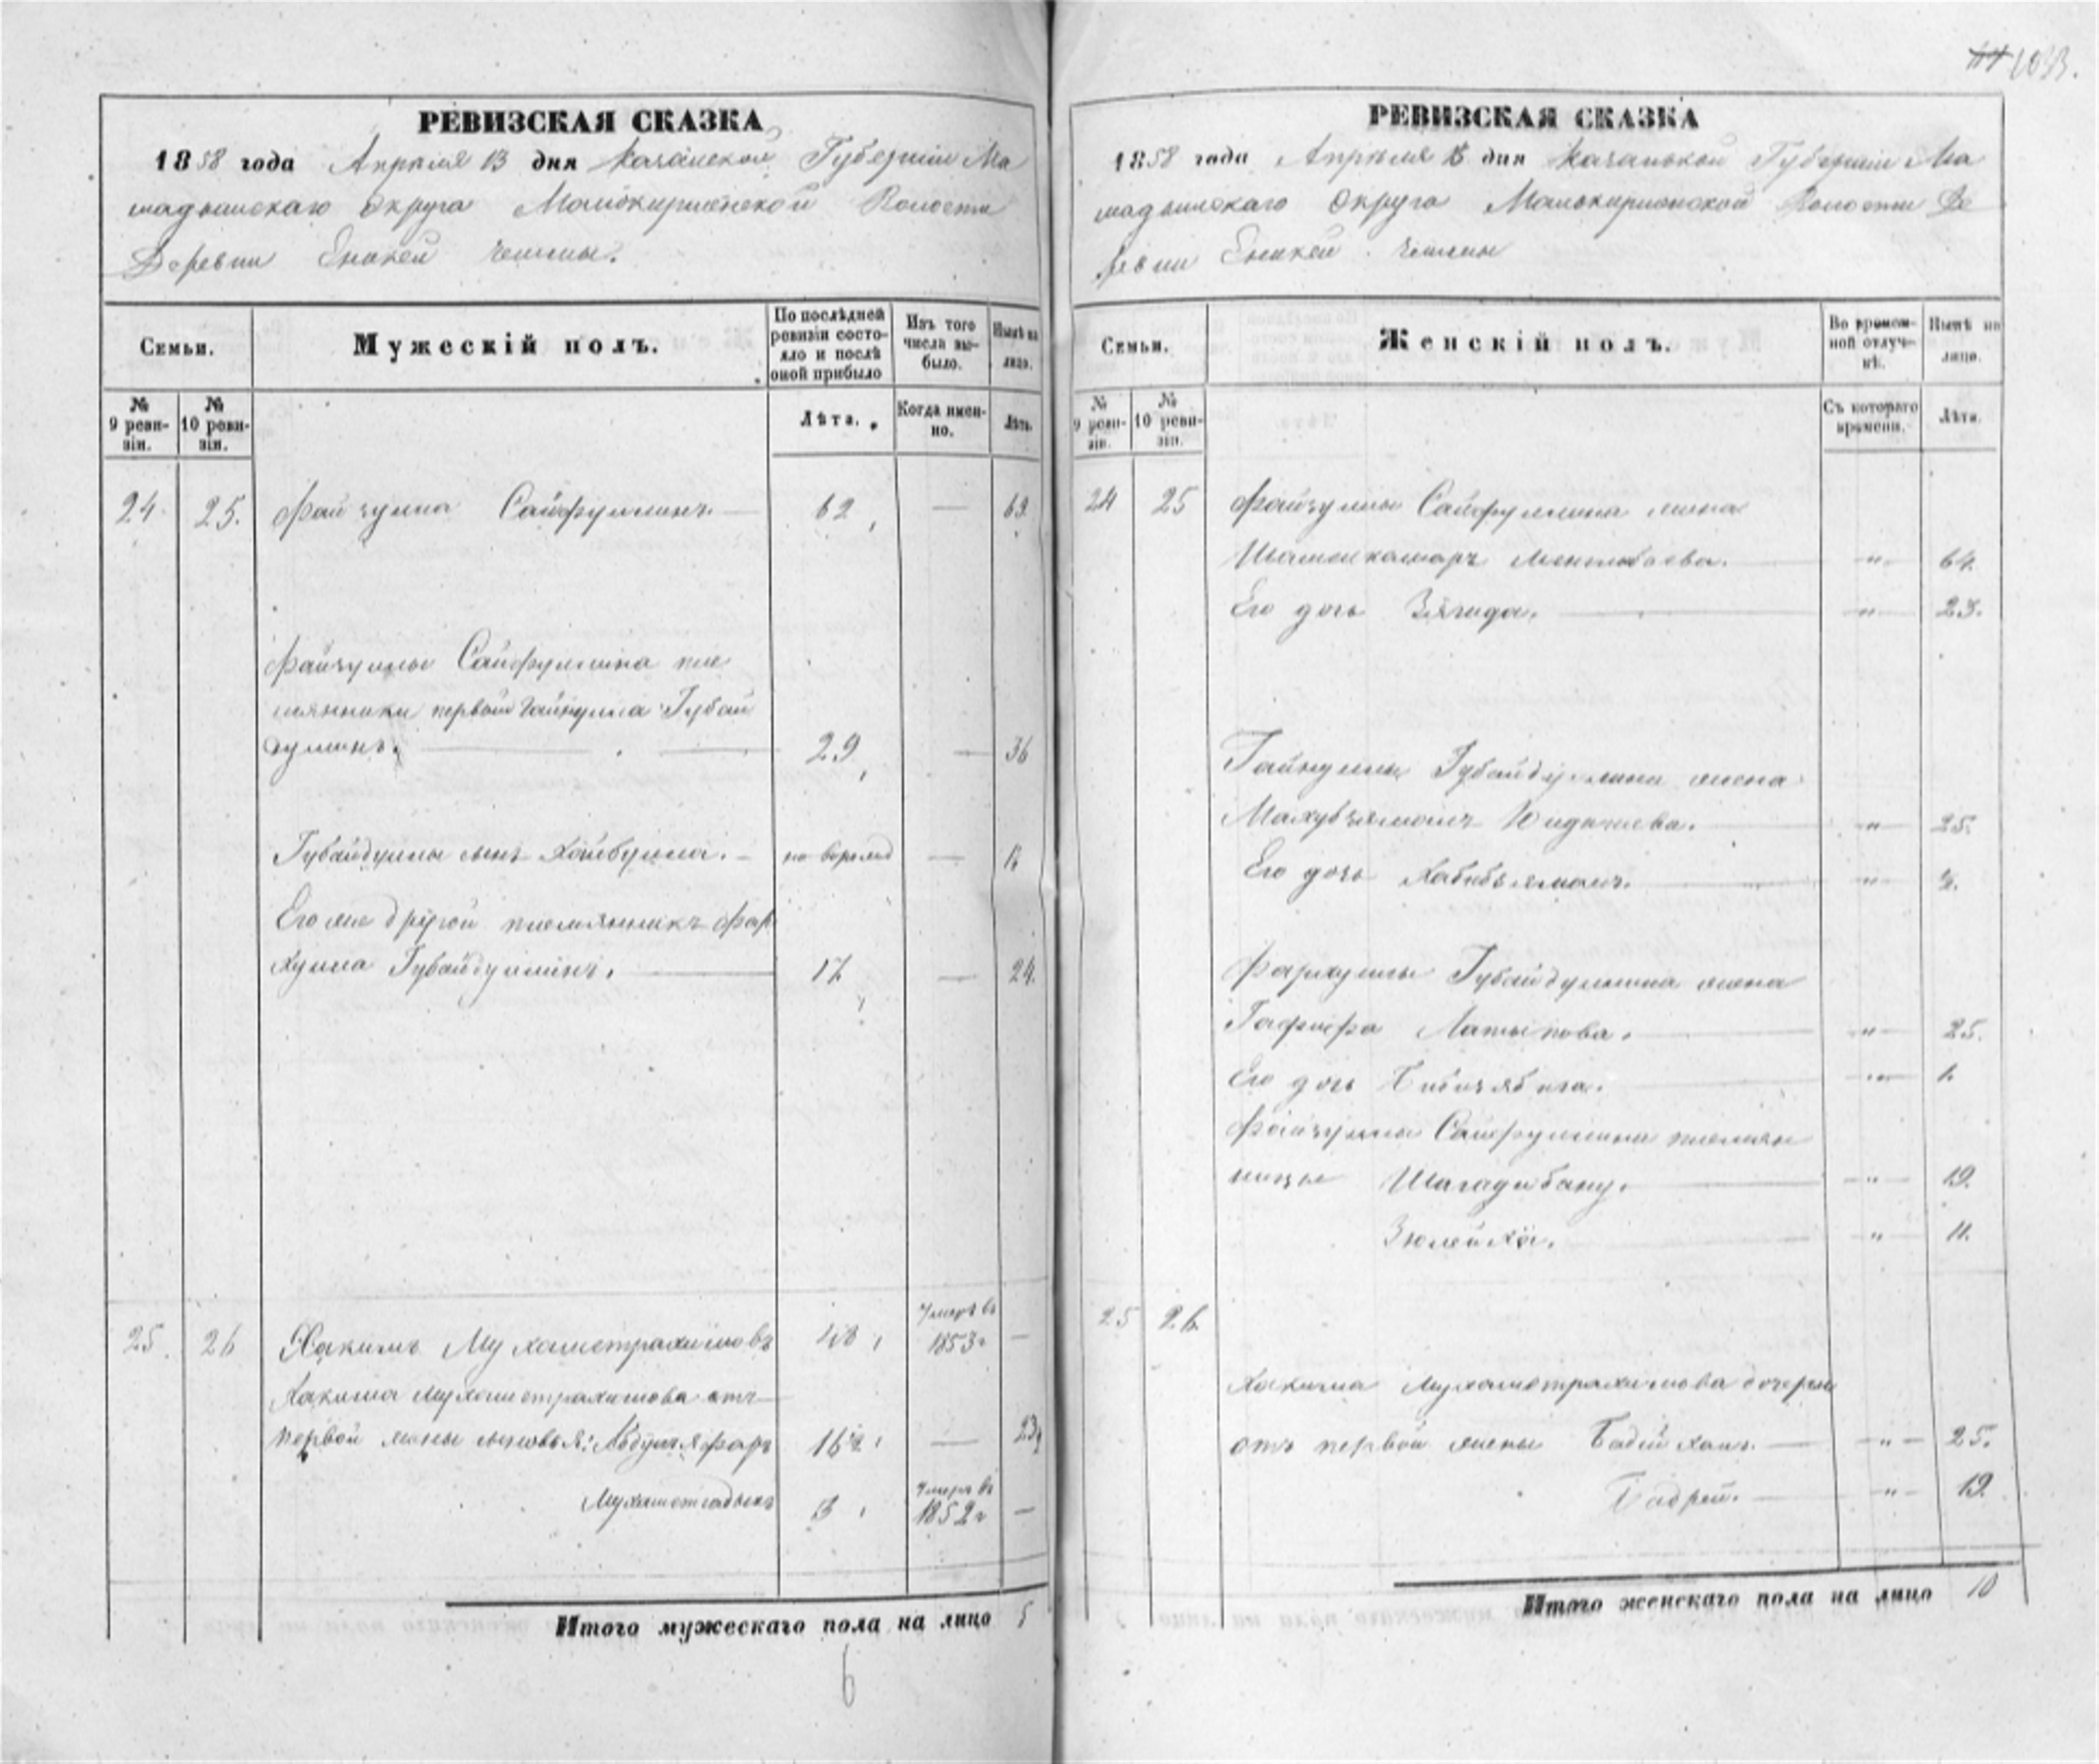 1033.
РЕВИЗСКАЯ СКАЗКА
1858 года Апреля 13 дня Казанской Губернии Ма
мадышскаго Округа Малокирменской Волости
Деревни Еникей Чешмы.
Семьи.
Мужескій полъ.
По послѣдней ревизіи состояло и послѣ оной прибыло
Изъ того числа выбыло.
Нынѣ на лицо.
№ 9 ревизіи.
№ 10 ревизіи.
Лѣта.
Когда именно.
Лѣта.
24. 25. Файзулла Сайфуллинъ. — 62 — 69
Файзуллы Сайфуллина пле
мянники первой Гайнулла Губай
дуллинъ. — 29 — 36
Губайдуллы сынъ Хайбулла. —
Его же другой племянникъ Фар
хулла Губайдуллинъ. — 17 — 24.
25. 26 Хакимъ Мухаметрахимовъ умеръ въ 1853г —
Хакима Мухаметрахимова отъ
первой жены сыновья: 16½ — 23½
Мухаметсадыкъ 3 умеръ въ 1852г —
Итого мужескаго пола на лицо 5
6
РЕВИЗСКАЯ СКАЗКА
1858 года Апреля дня Казанской Губернии Ма
мадышскаго Округа Малокирменской Волости Де
ревни Еникей Чешмы
Семьи.
Женскій полъ.
Во временной отлучкѣ.
Нынѣ на лицо.
№ 9 ревизіи.
№ 10 ревизіи.
Съ котораго времени.
Лѣта.
24 25 Файзуллы Сайфуллина жена
— " — 64.
Его дочь Зягида. — " — 23.
Гайнуллы Губайдуллина жена
— " — 25.
Его дочь Хабибзямалъ. — " —
Фархуллы Губайдуллина жена
Гафифа Латыпова. — " — 25.
Его дочь — " — 1.
Файзуллы Сайфуллина племян
ницы Шагадибану. — " — 19.
Зюлейха. — " — 11.
25 26.
Хакима Мухаметрахимова дочери
отъ первой жены — " — 25.
Бадрей. — " — 19.
Итого женскаго пола на лицо 10